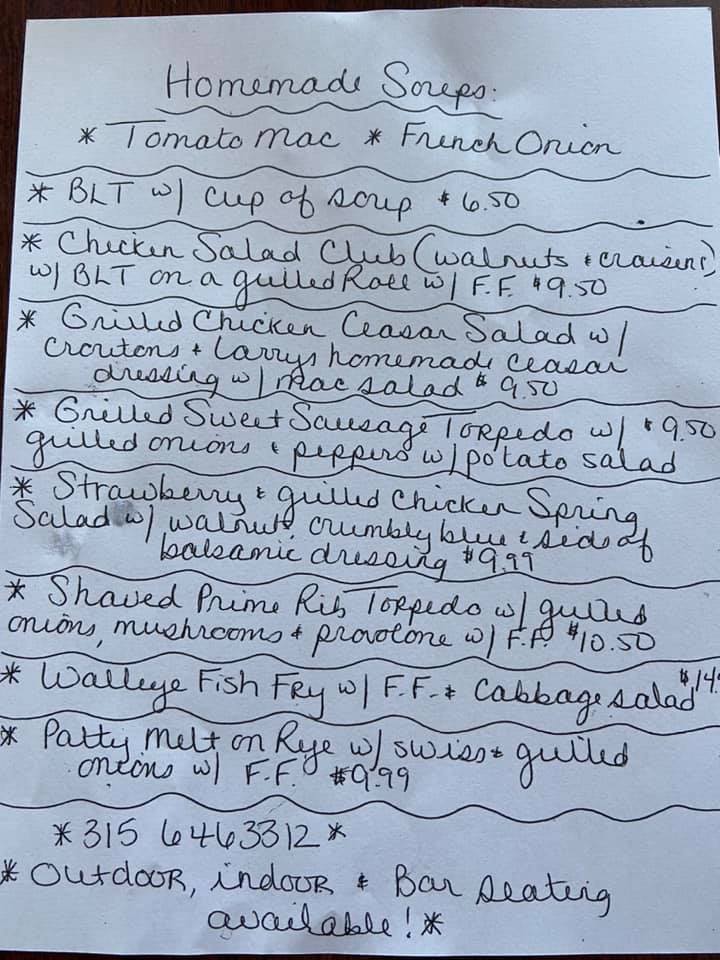 Homemade Soups:
* Tomato Mac * French Onion
* BLT w/ cup of soup $6.50
* Chicken Salad Club (walnuts & craisens)
w/ BLT on a grilled Roll w/ F.F. $9.50
* Grilled Chicken Ceasar Salad w/
croutons & Larrys homemade ceasar
dressing w/ mac salad $9.50
* Grilled Sweet Sausage Torpedo w/ $9.50
grilled onions & peppers w/ potato salad
* Strawberry & grilled chicken Spring
Salad w/ walnuts crumbly blue & side of
balsamic dressing $9.99
* Shaved Prime Rib Torpedo w/ grilled
onions, mushrooms & provolone w/ F.F. $10.50
* Walleye Fish Fry w/ F.F. & Cabbage salad $14.
* Patty Melt on Rye w/ swiss & grilled
onions w/ F.F. $9.99
*315 6463312*
* Outdoor, indoor & Bar seating
available! *